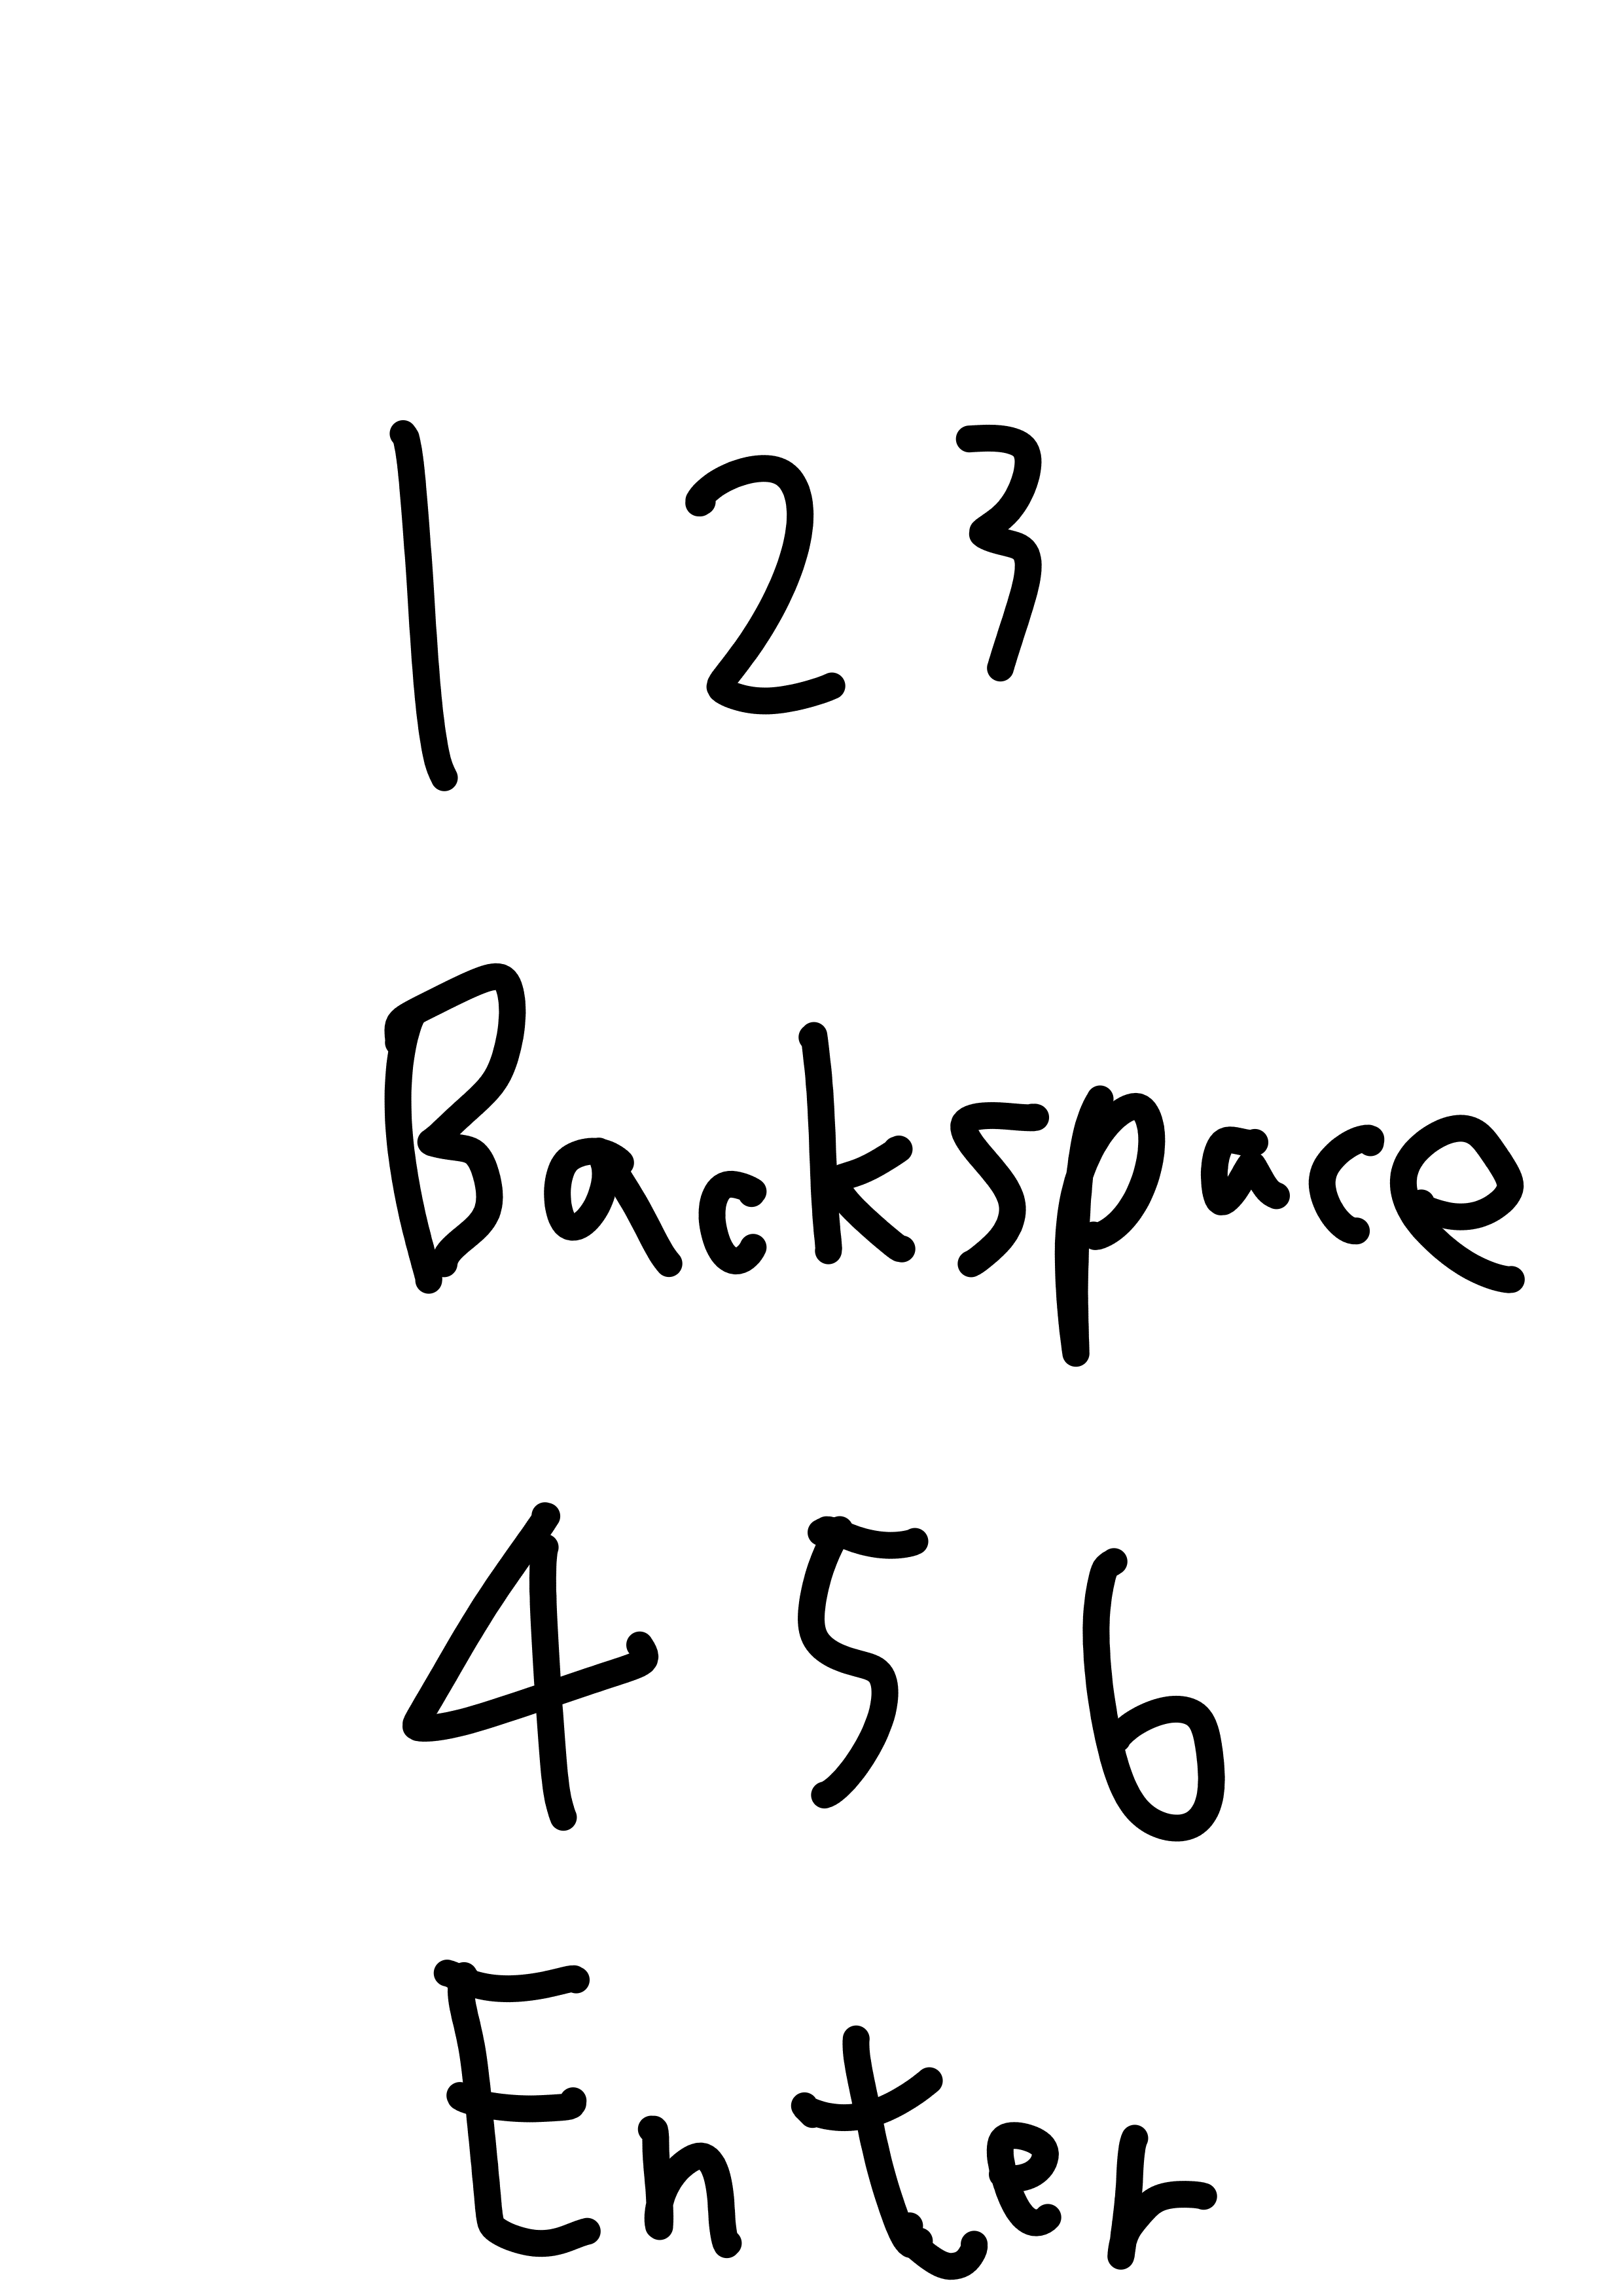 1 2 3
Backspace
4 5 6
Enter